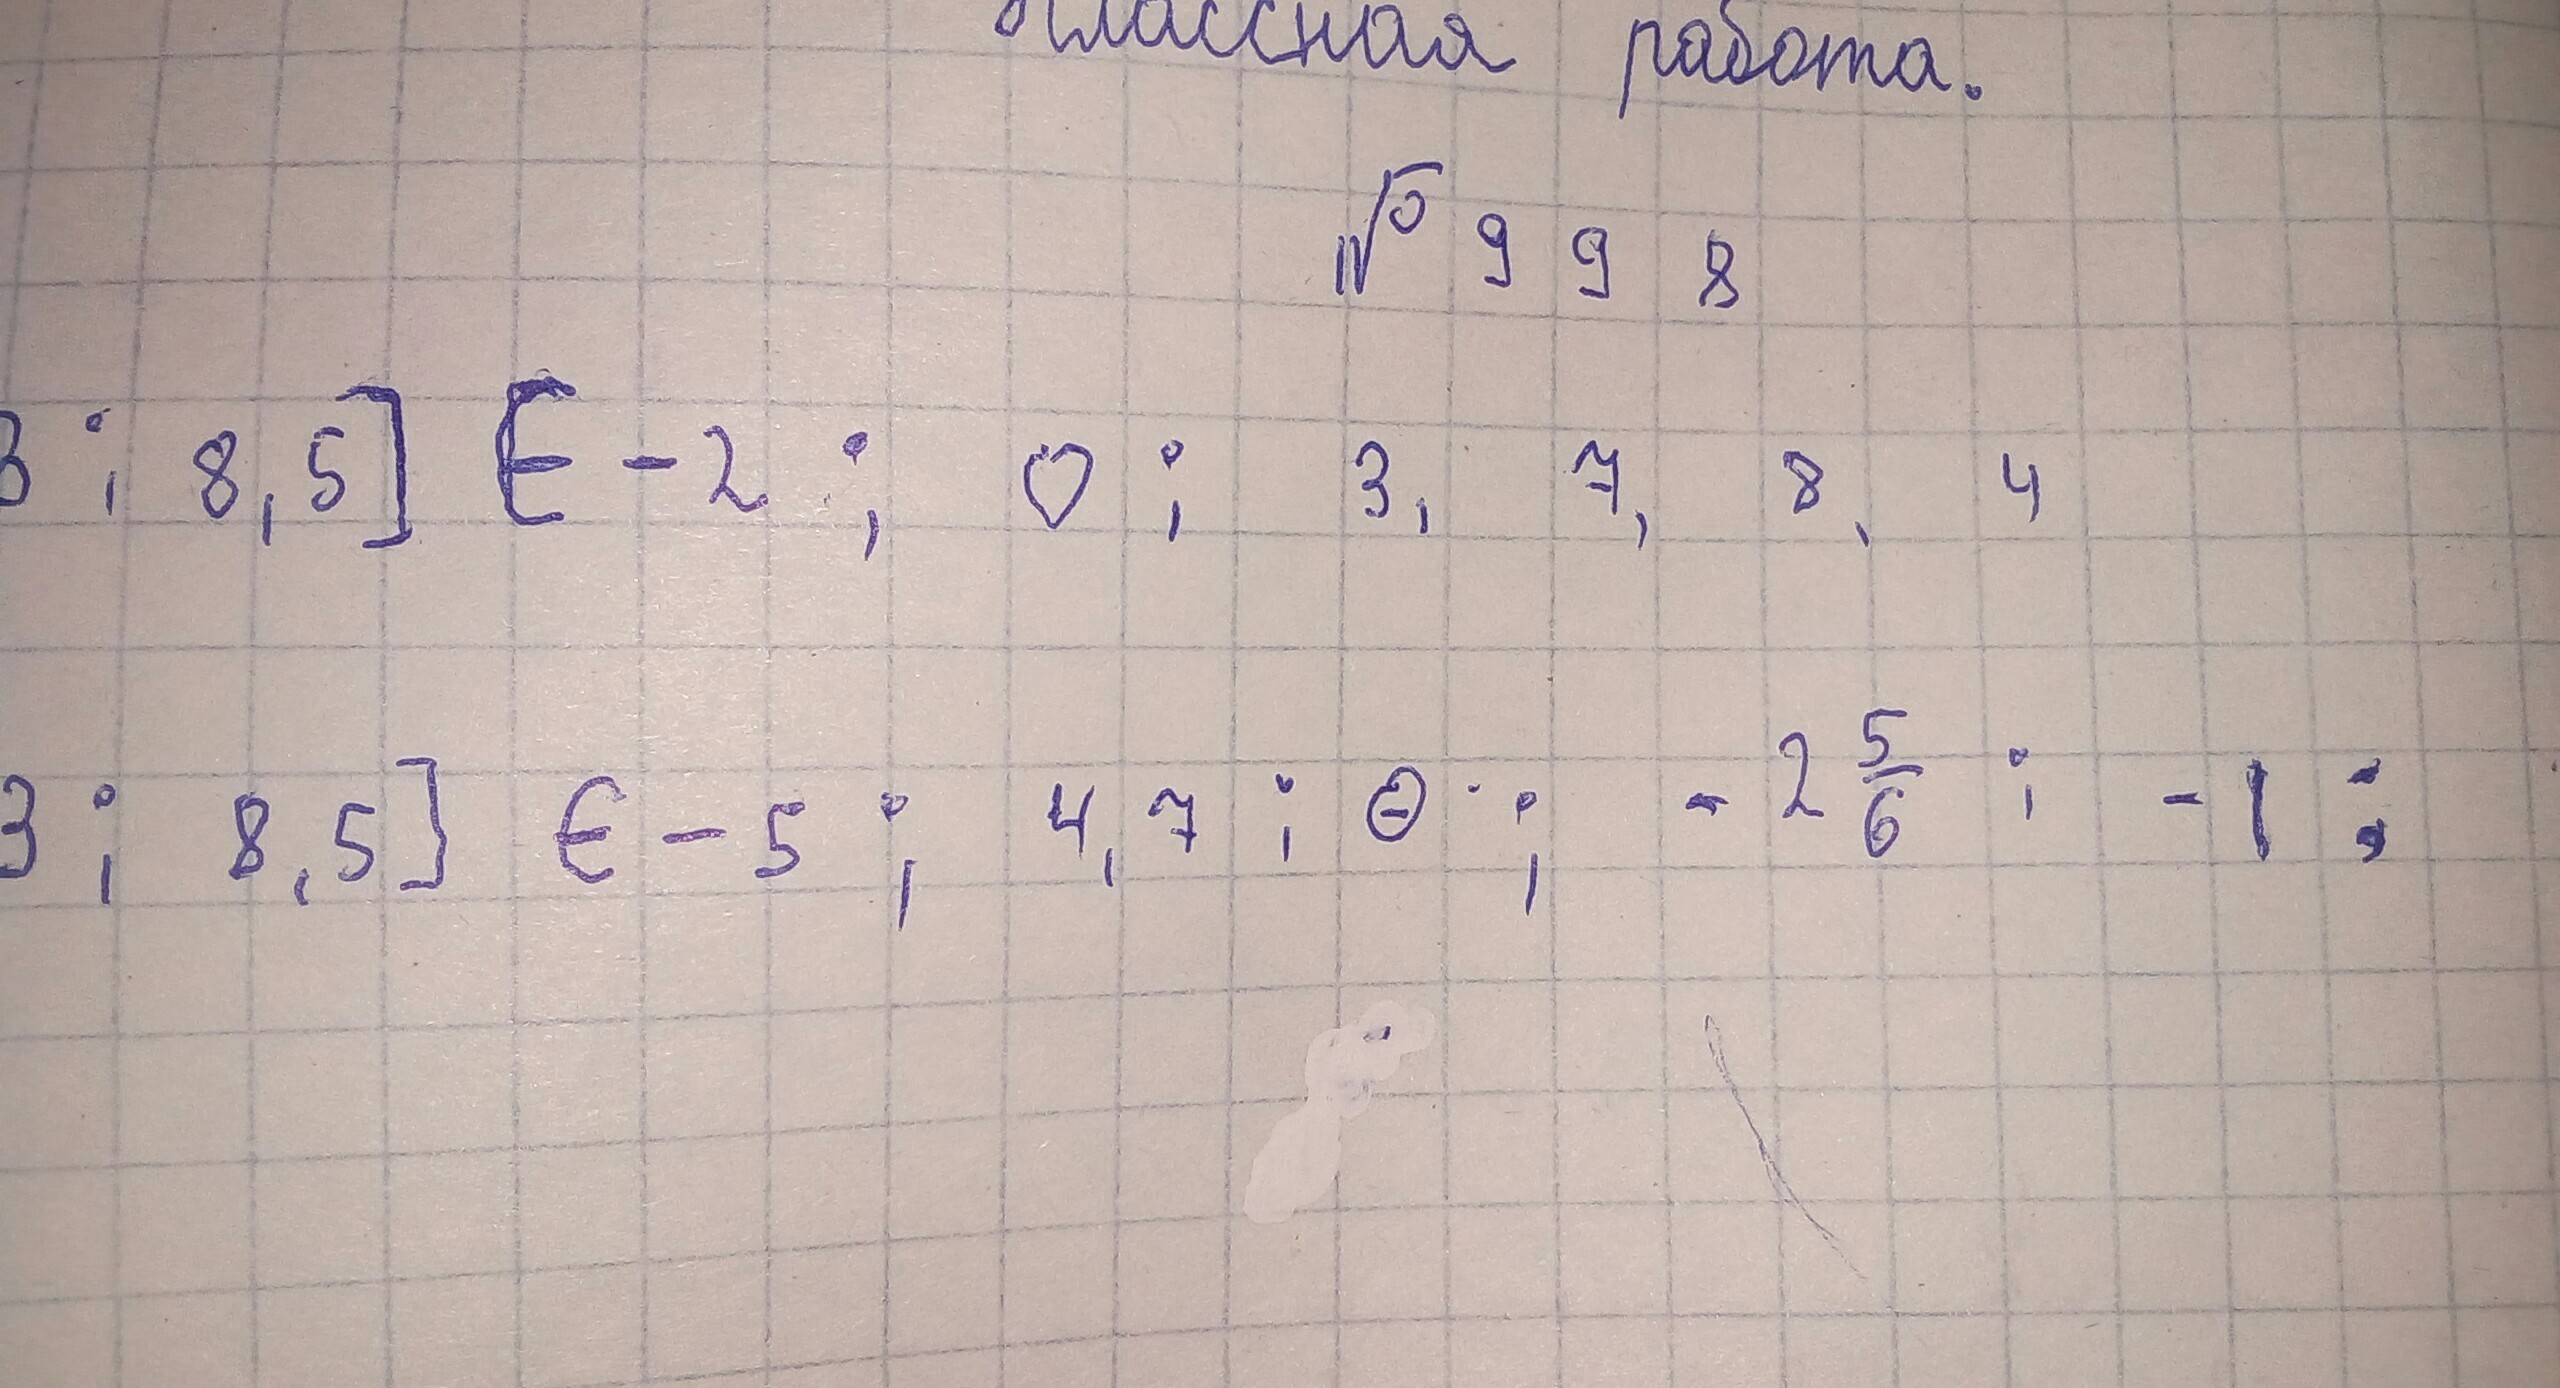 Классная работа.
№ 998
3 ; 8,5] ∈ -2 ; 0 ; 3, 7, 8, 4
3 ; 8,5] ∈ -5 ; 4,7 ; 0 ; -2 5/6 ; -1 ;